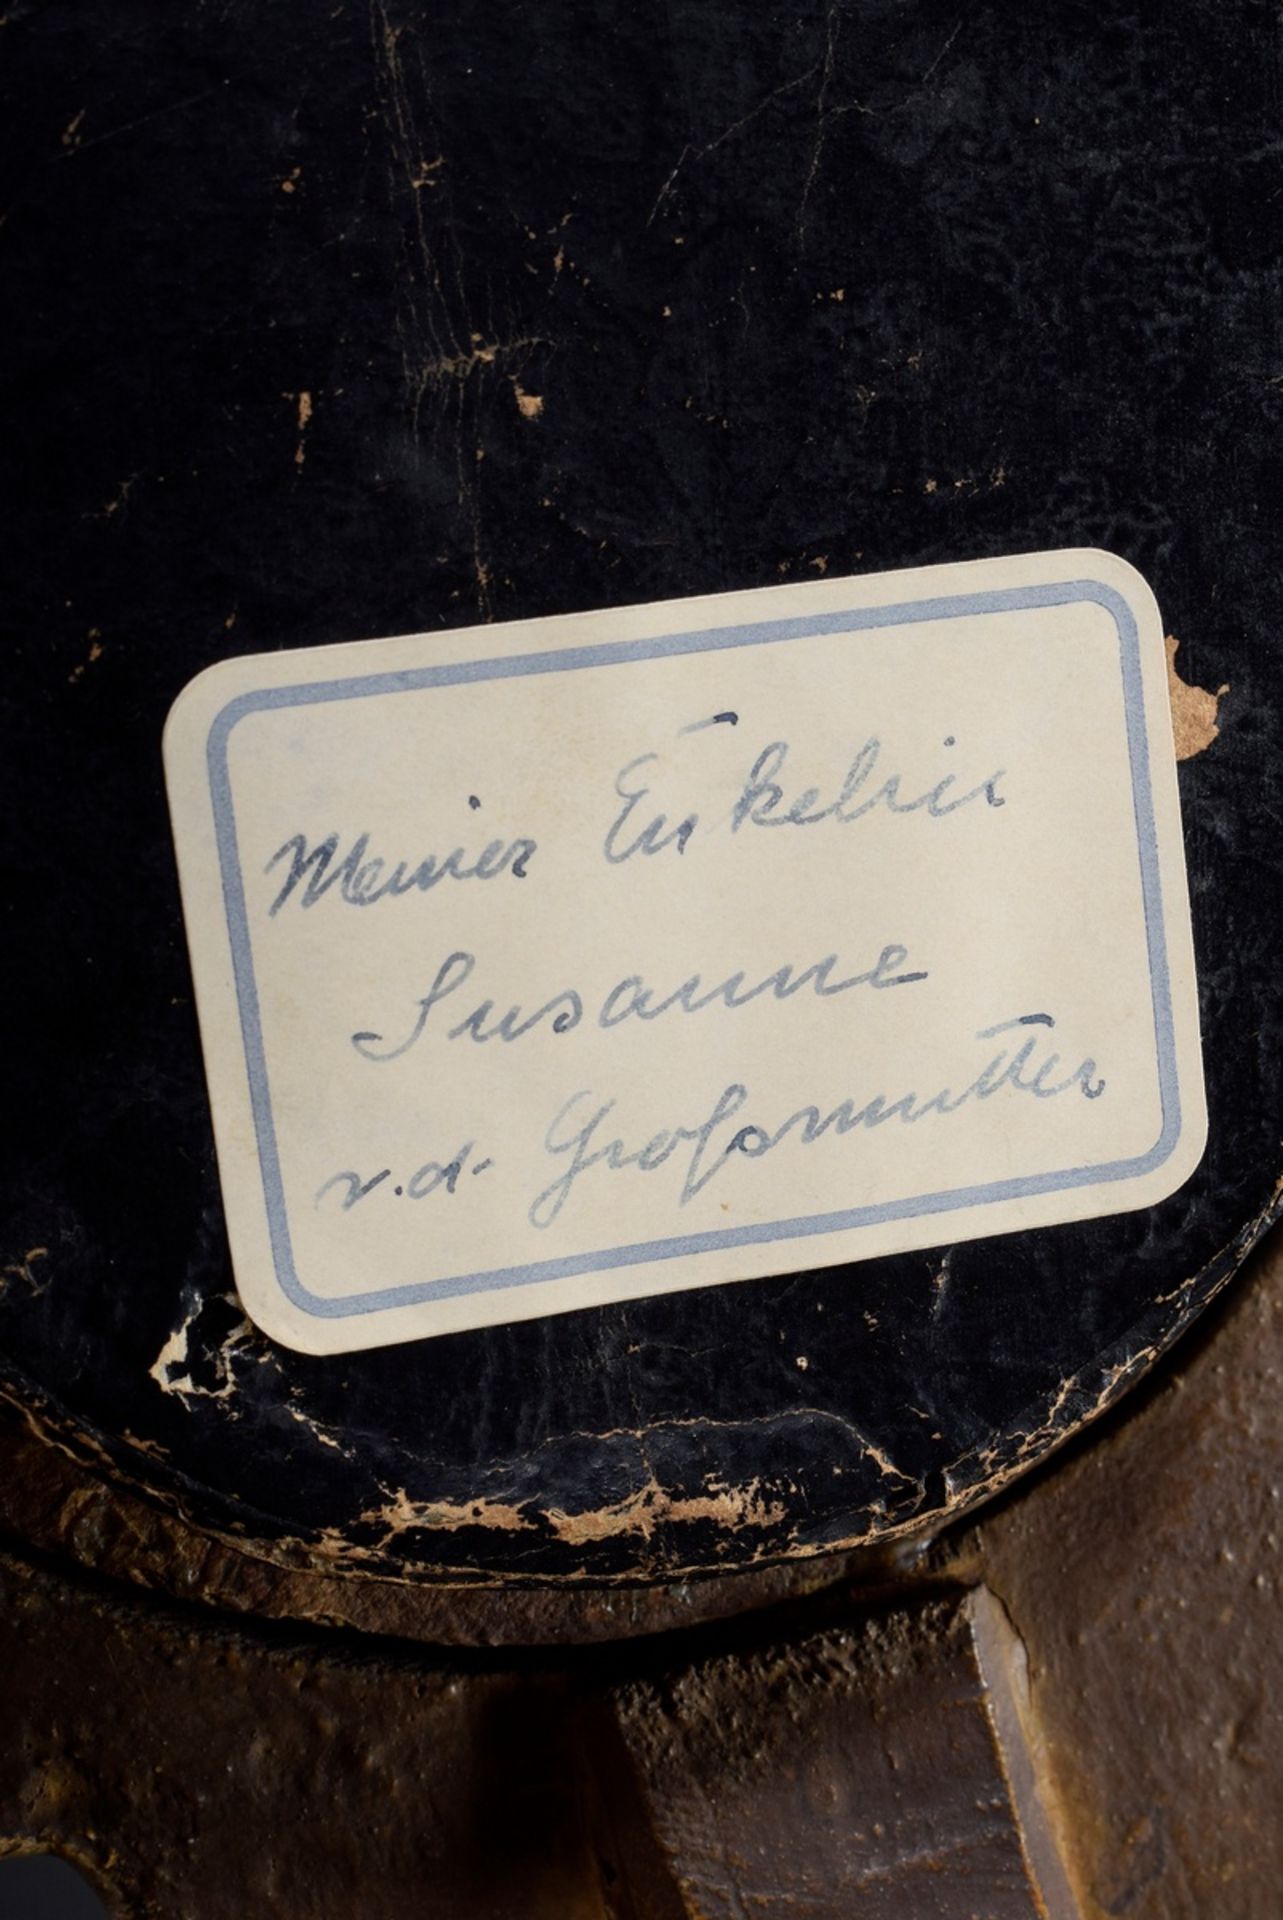 Meiner Enkelin
Susanne
v. d. Großmutter